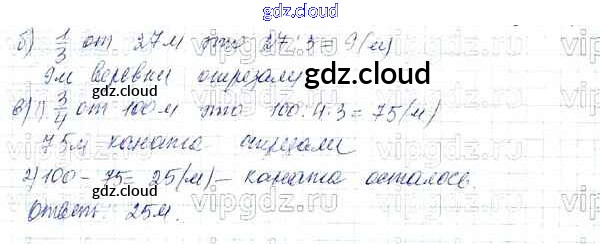 gdz.cloud
б) 1/3 от 27м это 27:3=9(м)
9м веревки отрезали
gdz.cloud
в) 1) 3/4 от 100м это 100:4·3=75(м)
75м каната отрезали
2) 100-75=25(м)- каната осталось.
gdz.cloud
Ответ: 25м.
gdz.cloud